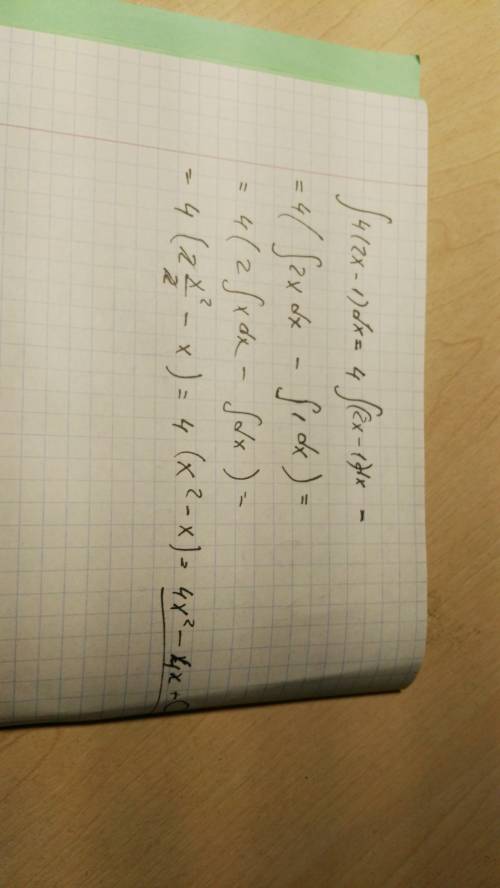 ∫4(2x-1)dx = 4∫(2x-1)dx =
= 4(∫2xdx - ∫1dx) =
= 4(2∫xdx - ∫dx) =
= 4(2x²/2 - x) = 4(x² - x) = 4x² - 4x + C